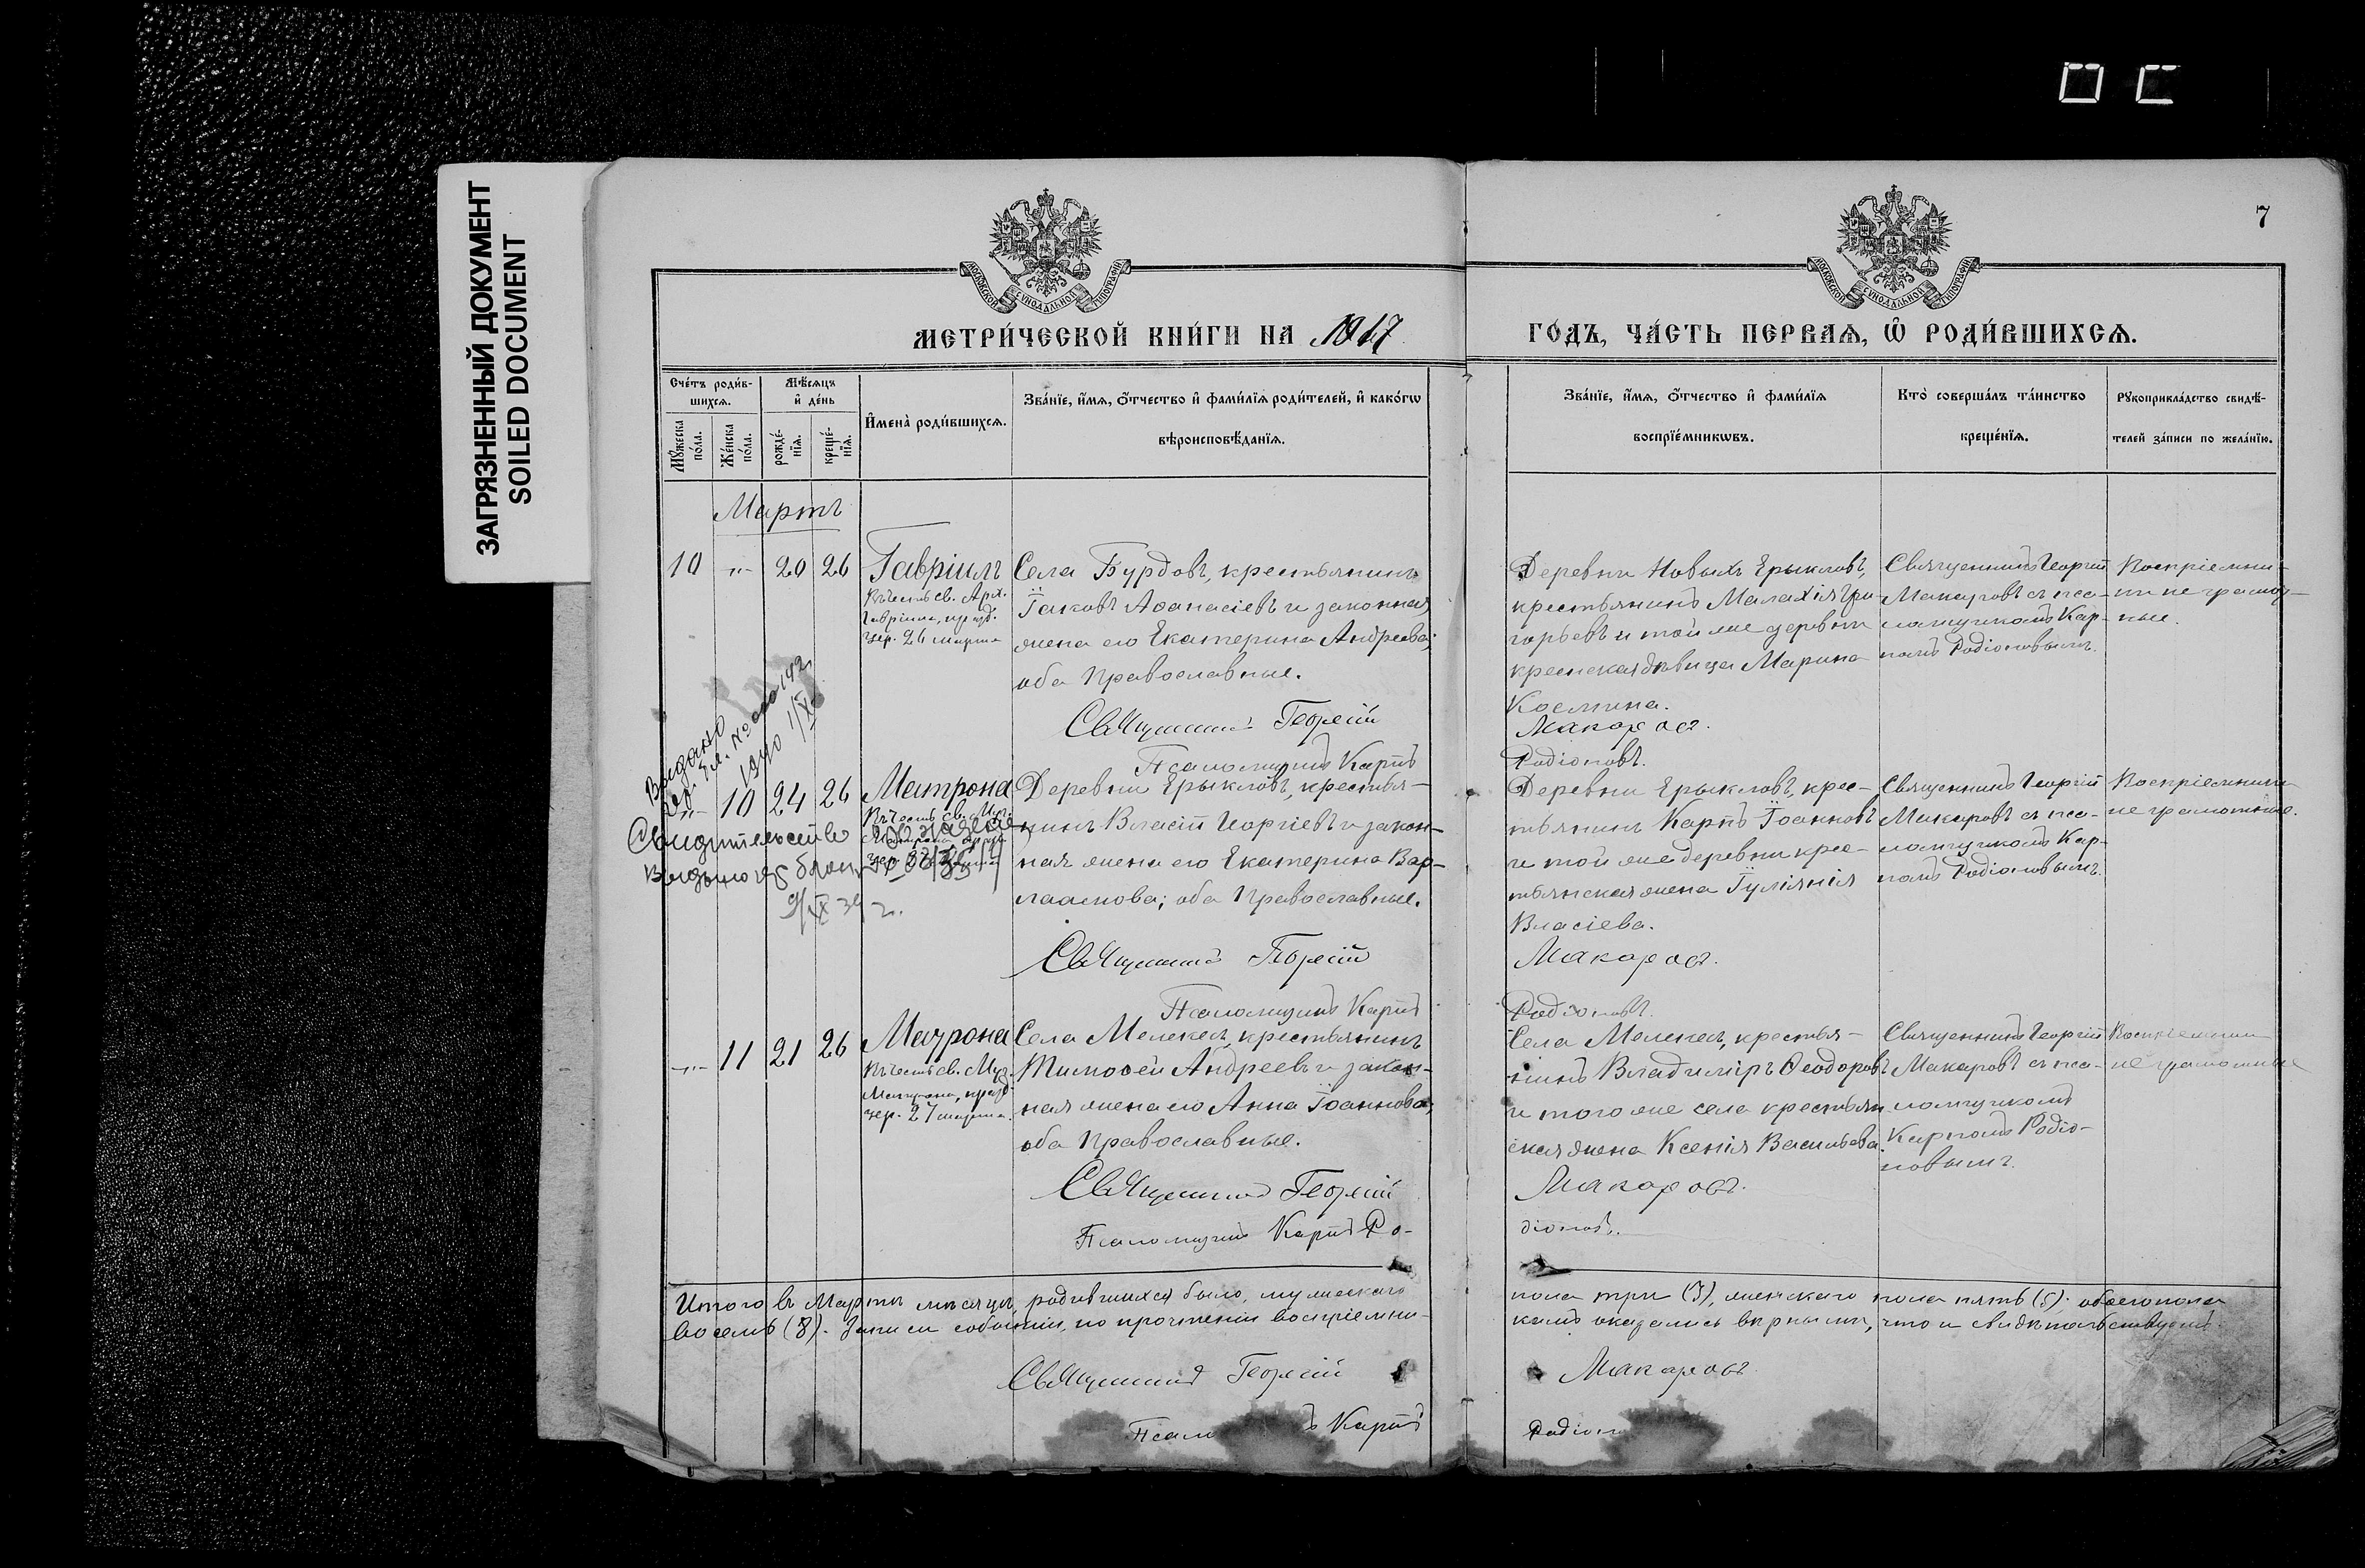 ЗАГРЯЗНЕННЫЙ ДОКУМЕНТ
SOILED DOCUMENT
7
МОСКОВСКОЙ СѴНОДАЛЬНОЙ ТИПОГРАФІИ
МОСКОВСКОЙ СѴНОДАЛЬНОЙ ТИПОГРАФІИ
МЕТРИ́ЧЕСКОЙ КНИ́ГИ НА 1917
ГО́ДЪ, ЧА́СТЬ ПЕ́РВАѦ, Ѡ҆ РОДИ́ВШИХСѦ.
Сче́тъ роди́в-
шихсѧ.
Мѣ́сѧцъ
и҆ де́нь
Мꙋ́жеска по́ла.
Же́нска по́ла.
рожде́-
нїѧ.
креще́-
нїѧ.
И҆мена̀ роди́вшихсѧ.
Зва́нїе, и҆́мѧ, ѻ҆́тчество и҆ фами́лїѧ роди́телей, и҆ како́гѡ
вѣроисповѣ́данїѧ.
Зва́нїе, и҆́мѧ, ѻ҆́тчество и҆ фами́лїѧ
воспрїе́мникѡвъ.
Кто̀ соверша́лъ та́инство
креще́нїѧ.
Рꙋкоприкла́дство свидѣ́-
телей за́писи по жела́нїю.
Мартъ
10 -"- 20 26
Гавріилъ
Въ честь св. Арх.
Гавріила, празд.
чер. 26 марта
Села Бурдовъ, крестьянинъ
Іаковъ Аѳанасіевъ и законная
жена его Екатерина Андреева;
оба Православные.
Священникъ Георгій
Псаломщикъ Карпъ
Деревни Новыхъ Ерыкловъ,
крестьянинъ Малахія Гри-
горьевъ и той же деревни
крестская дѣвица Марина
Космина.
Макаровъ.
Родіоновъ.
Священникъ Георгій
Макаровъ съ пса-
ломщикомъ Кар-
помъ Родіоновымъ.
Воспріемни-
ки не грамот-
ные.
Выдано
1940
-"- 10 24 26
Матрона
Въ честь св. Муч.
Свидетельство
Выдано
Деревни Ерыкловъ, крестья-
нинъ Власій Георгіевъ и закон-
ная жена его Екатерина Вар-
лаамова; оба Православные.
Священникъ Георгій
Псаломщикъ Карпъ
Деревни Ерыкловъ, крес-
тьянинъ Карпъ Іоанновъ
и той же деревни крес-
тьянская жена Іуліанія
Власіева.
Макаровъ.
Родіоновъ.
Священникъ Георгій
Макаровъ съ пса-
ломщикомъ Кар-
помъ Родіоновымъ.
Воспріемники
не грамотные.
-"- 11 21 26
Матрона
Въ честь св. Муч.
Матроны, празд.
чер. 27 марта.
Села Мелекес, крестьянинъ
Тимоѳей Андреевъ и закон-
ная жена его Анна Іоаннова;
оба Православные.
Священникъ Георгій
Псаломщикъ Карпъ Ро-
Села Мелекес, крестья-
нинъ Владиміръ Ѳеодоровъ
и того же села крестьян-
ская жена Ксенія Васильева.
Макаровъ.
діоновъ.
Священникъ Георгій
Макаровъ съ пса-
ломщикомъ
Карпомъ Родіо-
новымъ.
Воспріемники
не грамотные
Итого въ Мартѣ мѣсяцѣ родившихся было, мужескаго
пола три (3), женскаго пола пять (5); обоего пола
восемь (8). Записи событій, по прочтеніи воспріемни-
камъ оказались вѣрными, что и свидѣтельствуемъ.
Священникъ Георгій
Макаровъ.
Карпъ